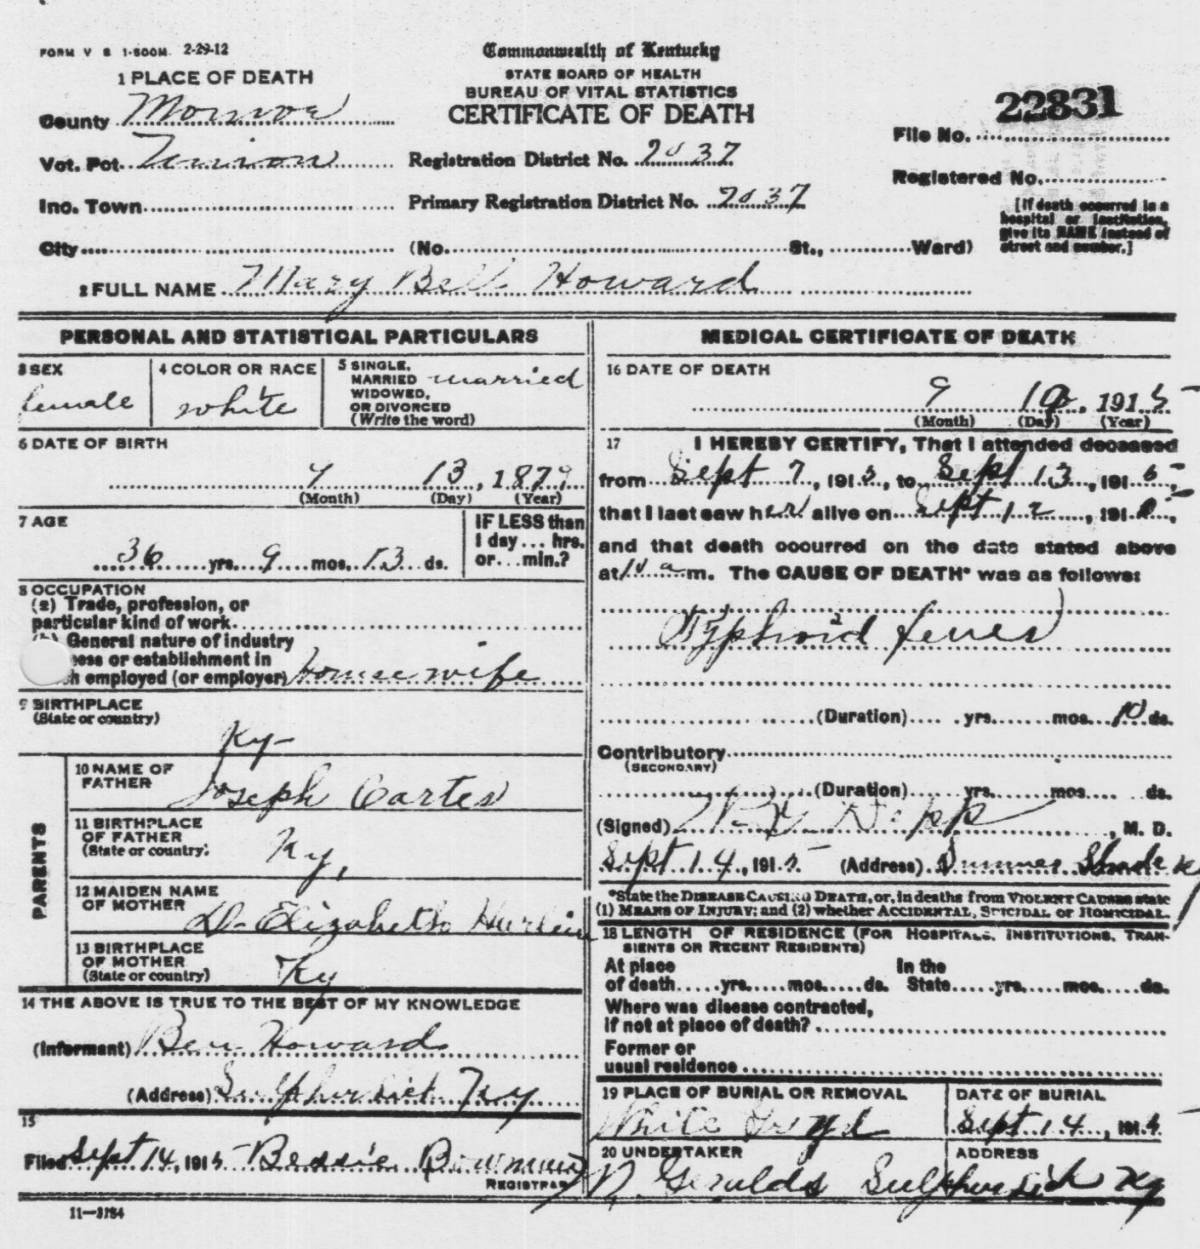 FORM V S 1-500M. 2-29-12
Commonwealth of Kentucky
STATE BOARD OF HEALTH
BUREAU OF VITAL STATISTICS
CERTIFICATE OF DEATH
1 PLACE OF DEATH
County Monroe
Vot. Pct.
Inc. Town
City (No. St., Ward)
Registration District No. 2037
Primary Registration District No. 2037
22831
File No.
Registered No.
[If death occurred in a
hospital or institution,
give its NAME instead of
street and number.]
2 FULL NAME Mary Bell Howard
PERSONAL AND STATISTICAL PARTICULARS
3 SEX
female
4 COLOR OR RACE
white
5 SINGLE,
MARRIED married
WIDOWED,
OR DIVORCED
(Write the word)
6 DATE OF BIRTH
13, 187
(Month) (Day) (Year)
7 AGE
36 yrs. 9 mos. 13 ds.
IF LESS than
1 day... hrs.
or... min.?
8 OCCUPATION
(a) Trade, profession, or
particular kind of work
General nature of industry
ness or establishment in
h employed (or employer) House wife
9 BIRTHPLACE
(State or country)
Ky-
PARENTS
10 NAME OF
FATHER
Joseph Carter
11 BIRTHPLACE
OF FATHER
(State or country)
Ky,
12 MAIDEN NAME
OF MOTHER
Elizabeth
13 BIRTHPLACE
OF MOTHER
(State or country)
Ky
14 THE ABOVE IS TRUE TO THE BEST OF MY KNOWLEDGE
(Informant) Ben Howard
(Address) Sulphur Lick Ky
15
Filed Sept 14, 1915 Bessie Bowman
REGISTRAR
11-3184
MEDICAL CERTIFICATE OF DEATH
16 DATE OF DEATH
9 , 1915
(Month) (Day) (Year)
17 I HEREBY CERTIFY, That I attended deceased
from Sept 7, 191 , to Sept 13, 1915
that I last saw her alive on Sept 12, 191 ,
and that death occurred on the date stated above
at 10 a m. The CAUSE OF DEATH* was as follows:
Typhoid fever
(Duration) yrs. mos. 10 ds.
Contributory
(SECONDARY)
(Duration) yrs. mos. ds.
(Signed) Depp, M. D.
Sept 14, 1915 (Address) Summer Shade Ky
*State the DISEASE CAUSING DEATH, or, in deaths from VIOLENT CAUSES state
(1) MEANS OF INJURY; and (2) whether ACCIDENTAL, SUICIDAL OR HOMICIDAL.
18 LENGTH OF RESIDENCE (FOR HOSPITALS, INSTITUTIONS, TRAN-
SIENTS OR RECENT RESIDENTS)
At place In the
of death yrs. mos. ds. State yrs. mos. ds.
Where was disease contracted,
if not at place of death?
Former or
usual residence
19 PLACE OF BURIAL OR REMOVAL
White
DATE OF BURIAL
Sept 14, 1915
20 UNDERTAKER
Geralds
ADDRESS
Sulphur Lick Ky